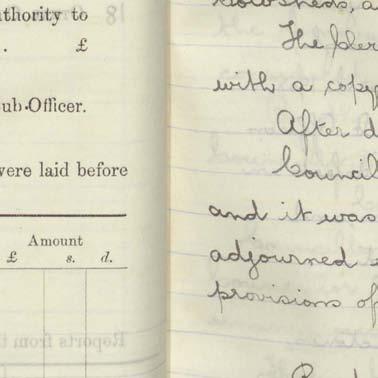 uthority to
. £
ub-Officer.
were laid before
Amount
£ s. d.
The
with a copy
After d
Council
and it was
adjourned
provisions of